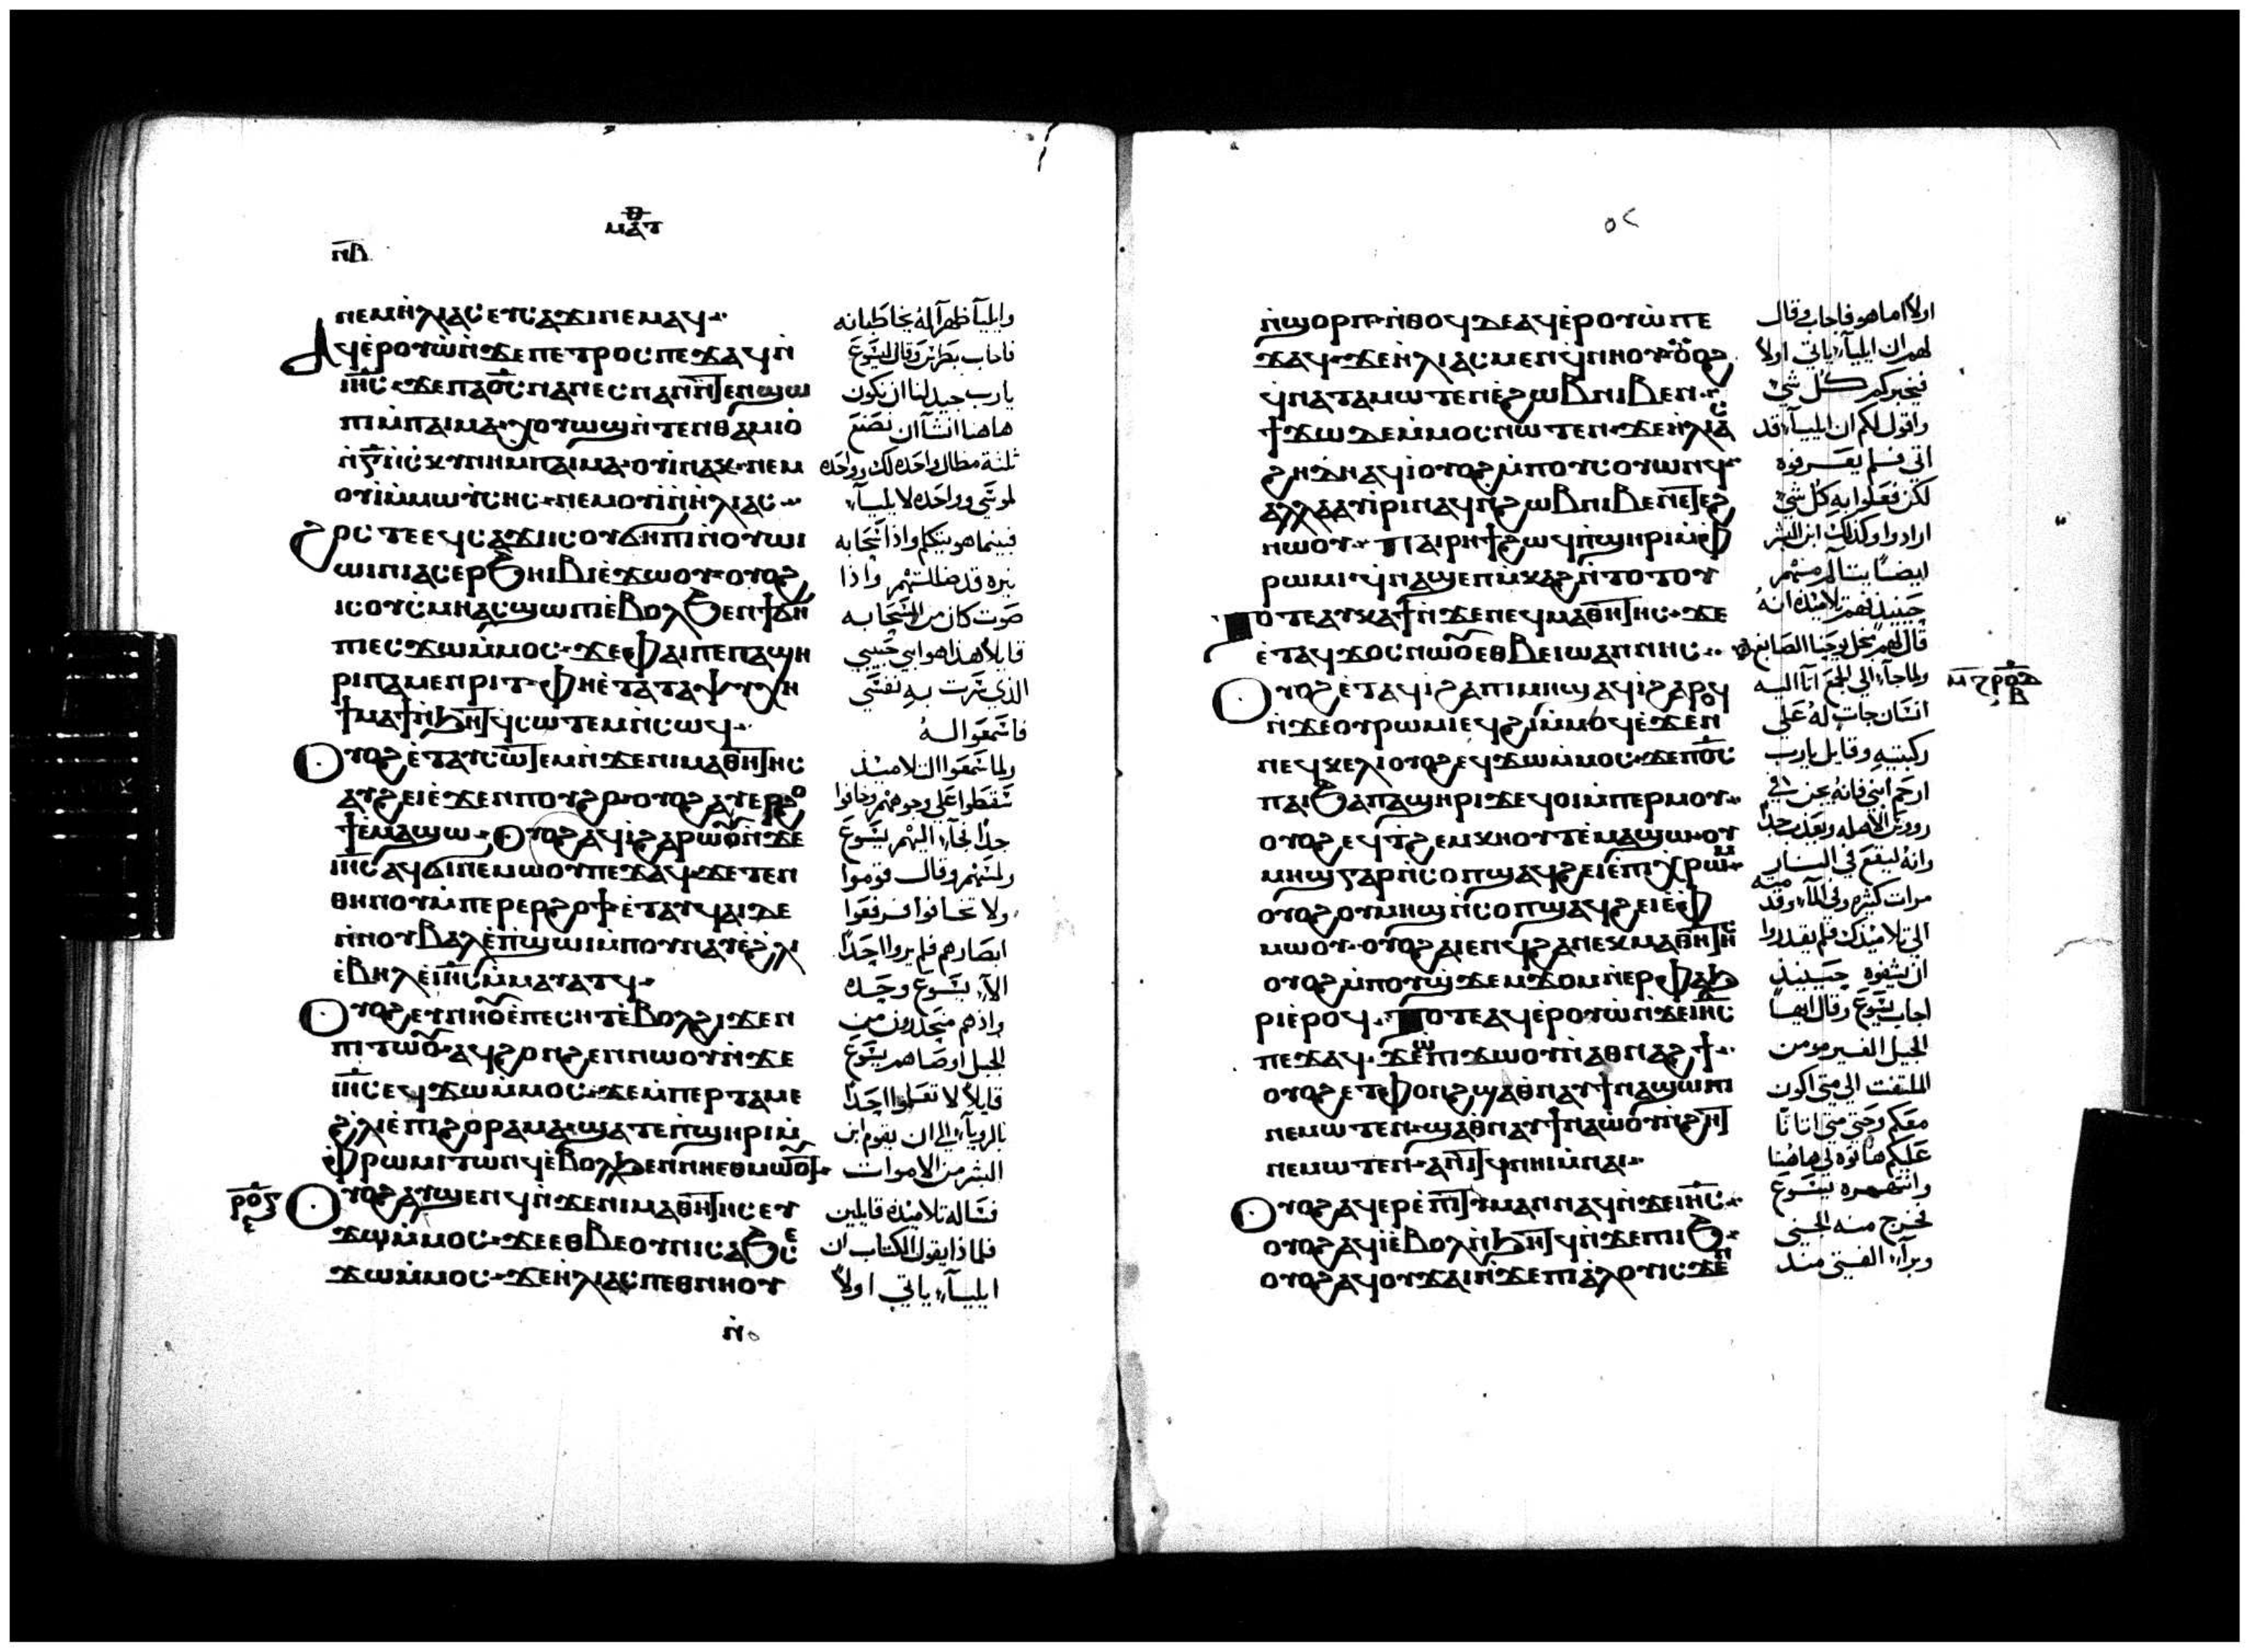 ⲙⲁⲧ
ⲛⲃ
ⲛⲉⲙⲏⲗⲓⲁⲥ ⲉⲩⲥⲁϫⲓ ⲛⲉⲙⲁϥ
ⲁϥⲉⲣⲟⲩⲱ ⲛϫⲉ ⲡⲉⲧⲣⲟⲥ ⲡⲉϫⲁϥ ⲛ
ⲓⲏⲥ ϫⲉ ⲡⲁⲟⲥ ⲛⲁⲛⲉⲥ ⲛⲁⲛ ⲛⲧⲉⲛϣⲱ
ⲡⲓ ⲙⲡⲁⲓⲙⲁ ⲭⲟⲩⲱϣ ⲛⲧⲉⲛⲑⲁⲙⲓⲟ
ⲛⲅ ⲛⲥⲕⲩⲛⲏ ⲙⲡⲁⲓⲙⲁ ⲟⲩⲓ ⲛⲁⲕ ⲛⲉⲙ
ⲟⲩⲓ ⲙⲙⲱⲩⲥⲏⲥ ⲛⲉⲙ ⲟⲩⲓ ⲛⲏⲗⲓⲁⲥ
ϩⲟⲥ ⲧⲉ ⲉϥⲥⲁϫⲓ ⲓⲥ ⲟⲩϭⲏⲡⲓ ⲛⲟⲩⲱⲓ
ⲱⲓⲛⲓ ⲁⲥⲉⲣϧⲏⲓⲃⲓ ⲉϫⲱⲟⲩ ⲟⲩⲟϩ
ⲓⲥ ⲟⲩⲥⲙⲏ ⲁⲥϣⲱⲡⲓ ⲉⲃⲟⲗϧⲉⲛ ϯϭⲏ
ⲡⲓ ⲉⲥϫⲱ ⲙⲙⲟⲥ ϫⲉ ⲫⲁⲓ ⲡⲉ ⲡⲁϣⲏ
ⲣⲓ ⲡⲁⲙⲉⲛⲣⲓⲧ ⲫⲏ ⲉⲧⲁ ⲧⲁⲯⲩⲭⲏ
ϯⲙⲁϯ ⲛϧⲏⲧϥ ⲥⲱⲧⲉⲙ ⲛⲥⲱϥ
ⲟⲩⲟϩ ⲉⲧⲁⲩⲥⲱⲧⲉⲙ ⲛϫⲉ ⲛⲓⲙⲁⲑⲏⲧⲏⲥ
ⲁⲩϩⲉⲓ ⲉϫⲉⲛ ⲡⲟⲩϩⲟ ⲟⲩⲟϩ ⲁⲩⲉⲣϩⲟ
ϯ ⲉⲙⲁϣⲱ ⲟⲩⲟϩ ⲁϥⲓ ϩⲁⲣⲱⲟⲩ ⲛϫⲉ
ⲓⲏⲥ ⲁϥϭⲓ ⲛⲉⲙⲱⲟⲩ ⲡⲉϫⲁϥ ϫⲉ ⲧⲉⲛ
ⲑⲏⲛⲟⲩ ⲙⲡⲉⲣⲉⲣϩⲟϯ ⲉⲧⲁⲩϥⲁⲓ ⲇⲉ
ⲛⲛⲟⲩⲃⲁⲗ ⲉⲡϣⲱⲓ ⲙⲡⲟⲩⲛⲁⲩ ⲉϩⲗⲓ
ⲉⲃⲏⲗ ⲉⲓⲏⲥ ⲙⲙⲁⲩⲁⲧϥ
ⲟⲩⲟϩ ⲉⲩⲛⲏⲟⲩ ⲉⲡⲉⲥⲏⲧ ⲉⲃⲟⲗ ϩⲓϫⲉⲛ
ⲡⲓⲧⲱⲟⲩ ⲁϥϩⲟⲛϩⲉⲛ ⲛⲱⲟⲩ ⲛϫⲉ
ⲓⲏⲥ ⲉϥϫⲱ ⲙⲙⲟⲥ ϫⲉ ⲙⲡⲉⲣⲧⲁⲙⲉ
ϩⲗⲓ ⲉⲡⲓϩⲟⲣⲁⲙⲁ ϣⲁⲧⲉ ⲡϣⲏⲣⲓ ⲙ
ⲫⲣⲱⲙⲓ ⲧⲱⲛϥ ⲉⲃⲟⲗϧⲉⲛ ⲛⲏⲉⲑⲙⲱⲟⲩⲧ
ⲣⲟⲅ ⲟⲩⲟϩ ⲁⲩϣⲉⲛϥ ⲛϫⲉ ⲛⲓⲙⲁⲑⲏⲧⲏⲥ ⲉⲩ
ϫⲱ ⲙⲙⲟⲥ ϫⲉ ⲉⲑⲃⲉⲟⲩ ⲛⲓⲥⲁϧ ⲥⲉ
ϫⲱ ⲙⲙⲟⲥ ϫⲉ ⲏⲗⲓⲁⲥ ⲡⲉⲑⲛⲏⲟⲩ
ⲛ
وايليآ ظهرآ له يخاطبانه
فاجاب بطرس وقال ليسوع
يارب جيد لنا ان نكون
هاهنا انشآ ان نصنع
ثلثة مظال واحده لك وواحده
لموسي وواحده لايليآ
فبينما هو يتكلم واذا سحابه
نيره قد ظللتهم واذا
صوت كان من السحابه
قايلاً هذا هو ابني حبيبي
الذي سرت به نفسي
فاسمعوا له
ولما سمعوا التلاميذ
سقطوا علي وجوههم وخافوا
جداً فجآ اليهم يسوع
ولمسهم وقال قوموا
ولا تخافوا فرفعوا
ابصارهم فلم يروا احداً
الا يسوع وحده
واذ هم منحدرون من
الجبل اوصاهم يسوع
قايلاً لا تعلموا احداً
بالرويآ الي ان يقوم ابن
البشر من الاموات
فساله تلاميذه قايلين
فلماذا يقول الكتاب ان
ايليآ ياتي اولاً
٥٢
ⲛϣⲟⲣⲡ ⲛⲑⲟϥ ⲇⲉ ⲁϥⲉⲣⲟⲩⲱ ⲡⲉ
ϫⲁϥ ϫⲉ ⲏⲗⲓⲁⲥ ⲙⲉⲛ ϥⲛⲏⲟⲩ ⲟⲩⲟϩ
ϥⲛⲁⲧⲁⲙⲱⲧⲉⲛ ⲉϩⲱⲃ ⲛⲓⲃⲉⲛ
ϯϫⲱ ⲇⲉ ⲙⲙⲟⲥ ⲛⲱⲧⲉⲛ ϫⲉ ⲏⲗⲓⲁⲥ
ϩⲏⲇⲏ ⲁϥⲓ ⲟⲩⲟϩ ⲙⲡⲟⲩⲥⲟⲩⲱⲛϥ
ⲁⲗⲗⲁ ⲁⲩⲓⲣⲓ ⲛⲁϥ ⲛϩⲱⲃ ⲛⲓⲃⲉⲛ ⲉⲧⲉϩ
ⲛⲱⲟⲩ ⲡⲁⲓⲣⲏϯ ϩⲱϥ ⲡϣⲏⲣⲓ ⲙⲫ
ⲣⲱⲙⲓ ϥⲛⲁϣⲉⲡ ⲙⲕⲁϩ ⲛⲧⲟⲧⲟⲩ
ⲧⲟⲧⲉ ⲁⲩⲕⲁϯ ⲛϫⲉ ⲛⲉϥⲙⲁⲑⲏⲧⲏⲥ ϫⲉ
ⲉⲧⲁϥϫⲟⲥ ⲛⲱⲟⲩ ⲉⲑⲃⲉ ⲓⲱⲁⲛⲛⲏⲥ
ⲟⲩⲟϩ ⲉⲧⲁϥⲓ ϩⲁ ⲡⲓⲙⲏϣ ⲁϥⲓ ϩⲁⲣⲟϥ
ⲛϫⲉ ⲟⲩⲣⲱⲙⲓ ⲉϥϩⲓ ⲙⲙⲟϥ ⲉϫⲉⲛ
ⲛⲉϥⲕⲉⲗⲓ ⲟⲩⲟϩ ⲉϥϫⲱ ⲙⲙⲟⲥ ϫⲉ ⲡⲟⲥ
ⲛⲁⲓ ϧⲁ ⲡⲁϣⲏⲣⲓ ϫⲉ ϥⲟⲓ ⲙⲡⲉⲣⲙⲟⲩ
ⲟⲩⲟϩ ⲉϥⲧϩⲉⲙⲕⲏⲟⲩⲧ ⲉⲙⲁϣⲱ ⲟⲩ
ⲙⲏϣ ⲅⲁⲣ ⲛⲥⲟⲡ ϣⲁϥϩⲉⲓ ⲉⲡⲓⲭⲣⲱⲙ
ⲟⲩⲟϩ ⲟⲩⲙⲏϣ ⲛⲥⲟⲡ ϣⲁϥϩⲉⲓ ⲉⲫ
ⲙⲱⲟⲩ ⲟⲩⲟϩ ⲁⲓⲉⲛϥ ϩⲁ ⲛⲉⲕⲙⲁⲑⲏⲧⲏⲥ
ⲟⲩⲟϩ ⲙⲡⲟⲩϣϫⲉⲙϫⲟⲙ ⲛⲉⲣⲫⲁϧ
ⲣⲓ ⲉⲣⲟϥ ⲧⲟⲧⲉ ⲁϥⲉⲣⲟⲩⲱ ⲛϫⲉ ⲓⲏⲥ
ⲡⲉϫⲁϥ ϫⲉ ⲱ ⲡⲓϫⲱⲟⲩ ⲛⲁⲑⲛⲁϩϯ
ⲟⲩⲟϩ ⲉⲧⲫⲟⲛϩ ϣⲁ ⲑⲛⲁⲩ ϯⲛⲁϣⲱⲡⲓ
ⲛⲉⲙⲱⲧⲉⲛ ϣⲁ ⲑⲛⲁⲩ ϯⲛⲁⲱⲟⲩ ⲛϩⲏⲧ
ⲛⲉⲙⲱⲧⲉⲛ ⲁⲛⲓⲧϥ ⲛⲏⲓ ⲙⲛⲁⲓ
ⲟⲩⲟϩ ⲁϥⲉⲣⲉⲡⲓⲧⲓⲙⲁⲛ ⲛⲁϥ ⲛϫⲉ ⲓⲏⲥ
ⲟⲩⲟϩ ⲁϥⲓ ⲉⲃⲟⲗ ⲛϧⲏⲧϥ ⲛϫⲉ ⲡⲓⲓϧ
ⲟⲩⲟϩ ⲁϥⲟⲩϫⲁⲓ ⲛϫⲉ ⲡⲓⲁⲗⲟⲩ ⲓⲥϫⲉⲛ
اولاً اما هو فاجاب وقال
لهم ان ايليآ ياتي اولاً
فيخبركم كل شي
واقول لكم ان ايليآ قد
اتي فلم يعرفوه
لكن فعلوا به كل شي
ارادوا وكذلك ابن البشر
ايضاً يتالم منهم
حينيذ فهم تلاميذه انه
قال لهم من اجل يوحنا الصابغ
ولما جآ الي الجمع اتا اليه
انسان جاثٍ له علي
ركبتيه وقايل يارب
ارحم ابني فانه يجن في
رووس الاهله ويعذب جداً
وانه ليقع في النار
مرات كثيره وفي المآ وقدمته
الي تلاميذك فلم يقدروا
ان يشفوه حينيذ
اجاب يسوع وقال ايها
الجيل الغير مومن
الملتفت الي متي اكون
معكم وحتي متي اتانا
عليكم هاتوه لي هاهنا
وانتهره يسوع
فخرج منه الجني
وبرآ الفتي منذ